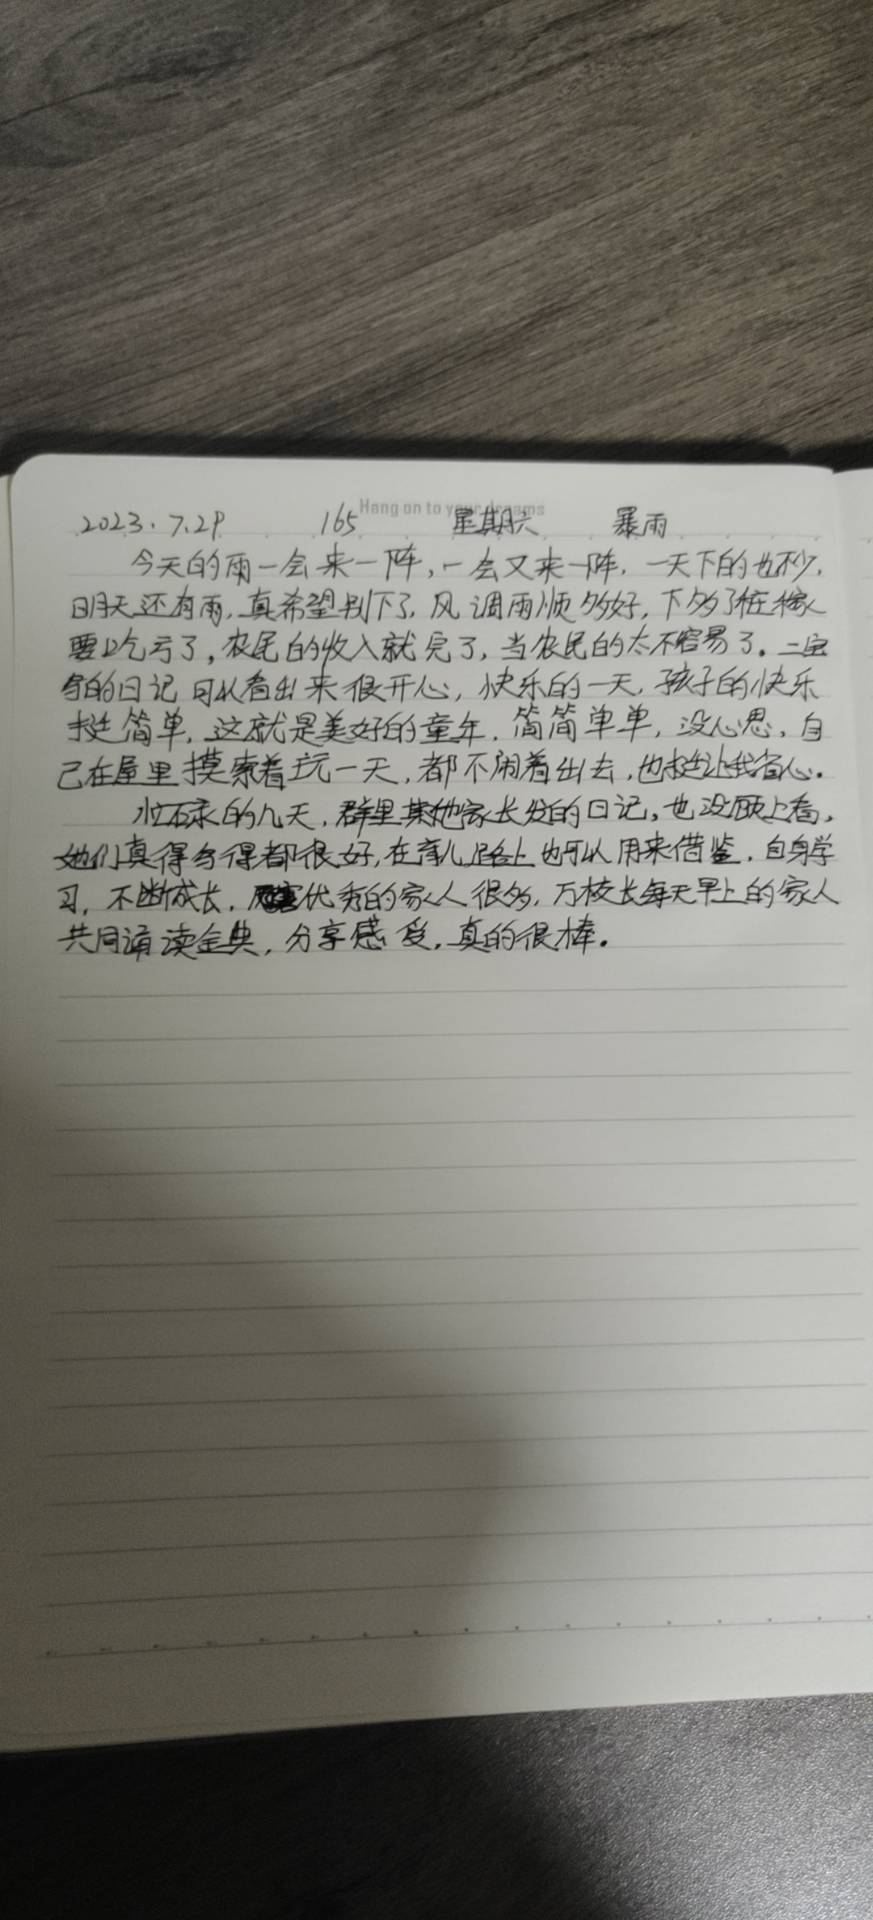 Hang on to your dreams
2023.7.29 165 星期六 暴雨
今天的雨一会来一阵,一会又来一阵,一天下的也不少,
明天还有雨,真希望别下了,风调雨顺多好,下多了庄稼
要吃亏了,农民的收入就完了,当农民的太不容易了。二宝
写的日记可以看出来很开心,快乐的一天,孩子的快乐
挺简单,这就是美好的童年,简简单单,没心思,自
己在屋里摸索着玩一天,都不闹着出去,也挺让我省心。
忙碌的几天,群里其他家长发的日记,也没顾上看,
她们真得写得都很好,在育儿路上也可以用来借鉴,自身学
习,不断成长,优秀的家人很多,万校长每天早上的家人
共同诵读金典,分享感受,真的很棒。